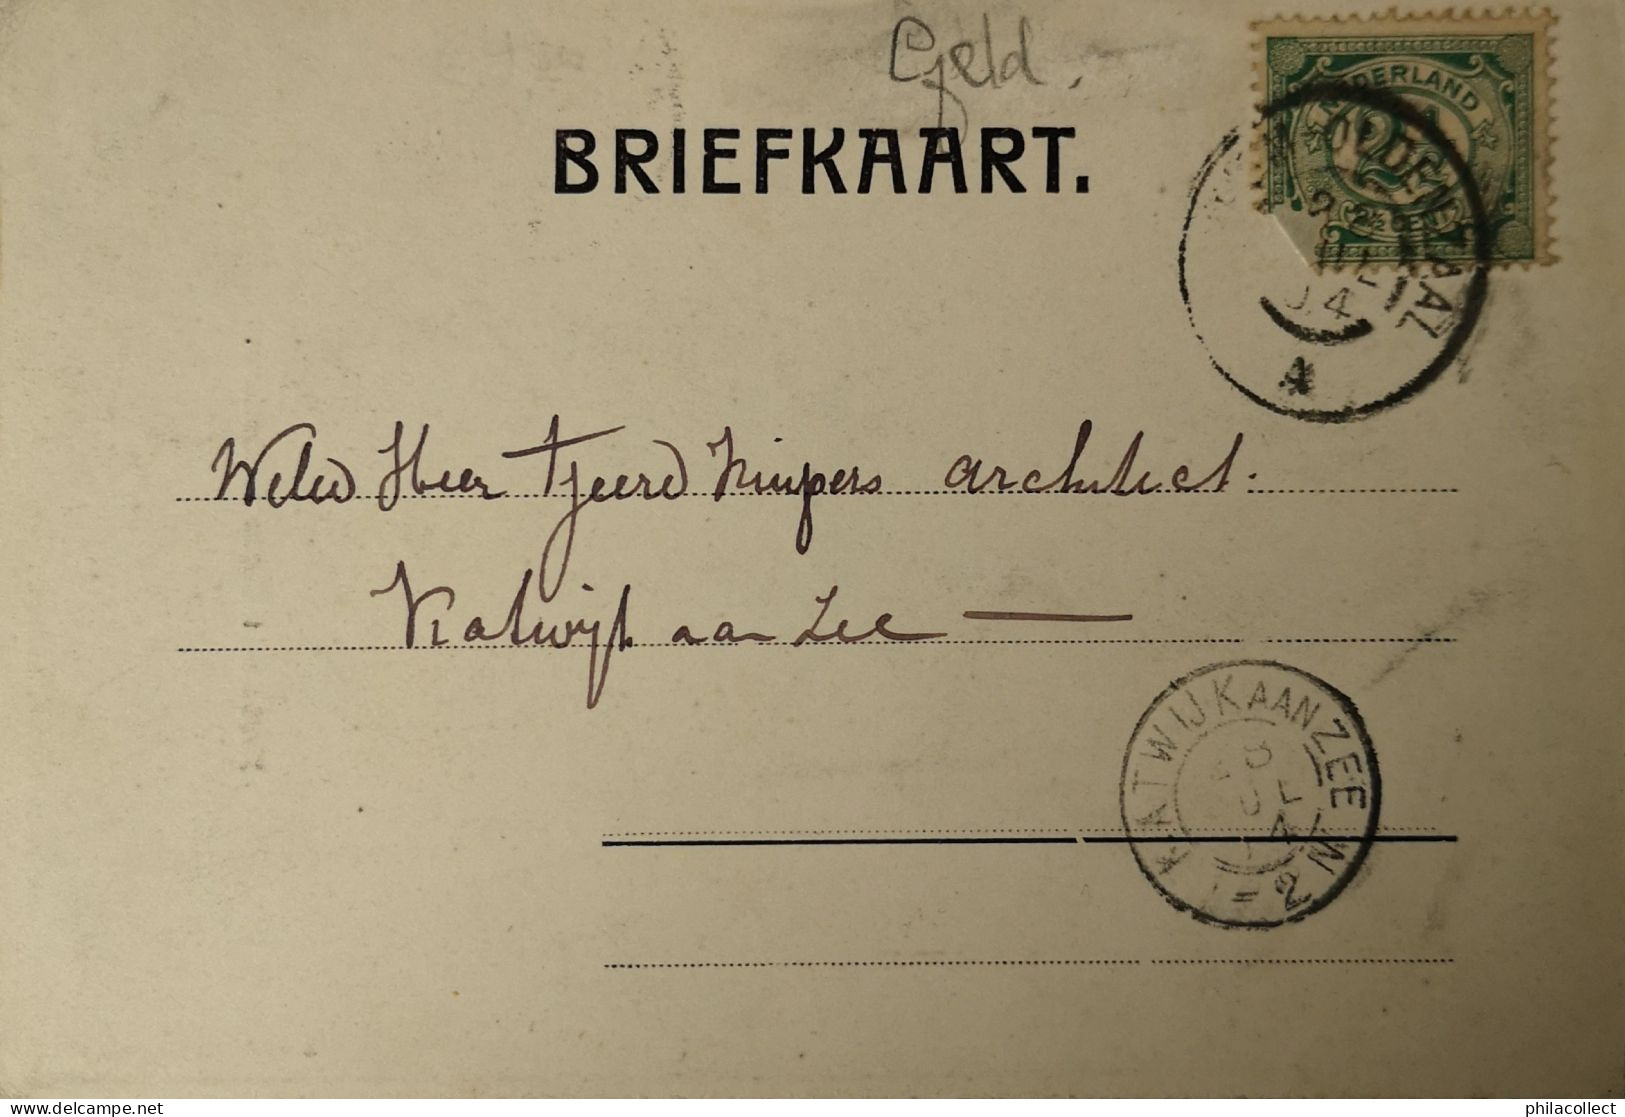 Geld.
BRIEFKAART.
NEDERLAND
2½
2½ CENT
OLDENZAAL
04
A
WelEd Heer Tjeerd Kuipers architect.
Katwijk aan Zee —
KATWIJK AAN ZEE
JUL
-2 N
philacollect
www.delcampe.net